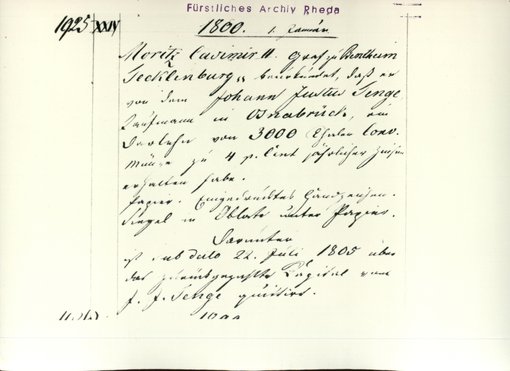 Fürstliches Archiv Rheda
1925 XXIV 1800. 1. Januar
Moritz Casimir II. Graf zu Bentheim
Tecklenburg beurkundet, daß er
von dem Johann Justus Senge
Kaufmann in Osnabrück, ein
Darlehn von 3000 Thaler Conv.
Münze zu 4 p. Cent jährlicher Zinsen
erhalten habe.
Papier. Eingedrucktes Handzeichen.
Siegel in Oblate unter Papier.
Darunter
ist sub dato 22. Juli 1805 über
das zurückgezahlte Capital von
J. J. Senge quittirt.